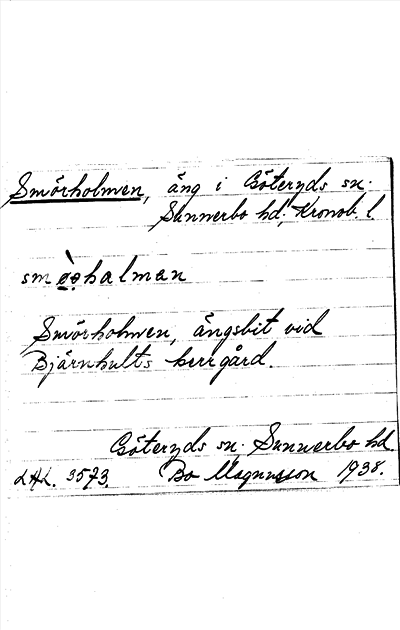 Smörholmen, äng i Göteryds sn.
Sunnerbo hd, Kronob. l
smö̀ǫhalman
Smörholmen, ängsbit vid
Bjärnhults herrgård.
Göteryds sn. Sunnerbo hd.
LAL. 3573. Bo Magnusson 1938.